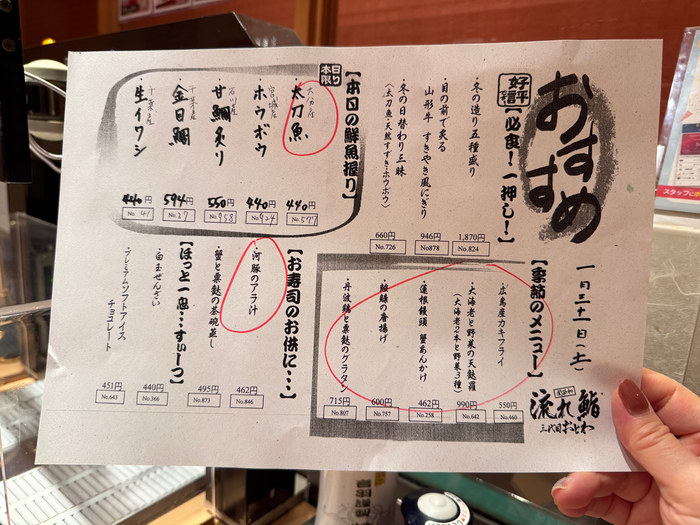 おすすめ
一月三十一日(土)
流れ鮨
三代目おとわ
好評
【必食!一押し!】
・冬の造り五種盛り
1,870円
No.824
・目の前で炙る
山形牛 すきやき風にぎり
946円
No878
・冬の日替わり三昧
(太刀魚・天然すずき・ホウボウ)
660円
No.726
本日限り
【本日の鮮魚握り】
大分産
・太刀魚
440円
No.577
宮城産
・ホウボウ
440円
No.924
石川産
・甘鯛炙り
550円
No.958
千葉産
・金目鯛
594円
No.27
千葉産
・生イワシ
440円
No.41
【季節のメニュー】
・広島産カキフライ
550円
No.460
・大海老と野菜の天麩羅
(大海老2本と野菜3種)
990円
No.642
・蓮根饅頭 蟹あんかけ
462円
No.258
・鮟鱇の唐揚げ
600円
No.757
・丹波鶏と粟麩のグラタン
715円
No.807
【お寿司のお供に・・・】
・河豚のアラ汁
462円
No.846
・蟹と粟麩の茶碗蒸し
495円
No.873
【ほっと一息・・・すぃーつ】
・白玉ぜんざい
440円
No.366
・プレミアムソフトアイス
チョコレート
451円
No.643